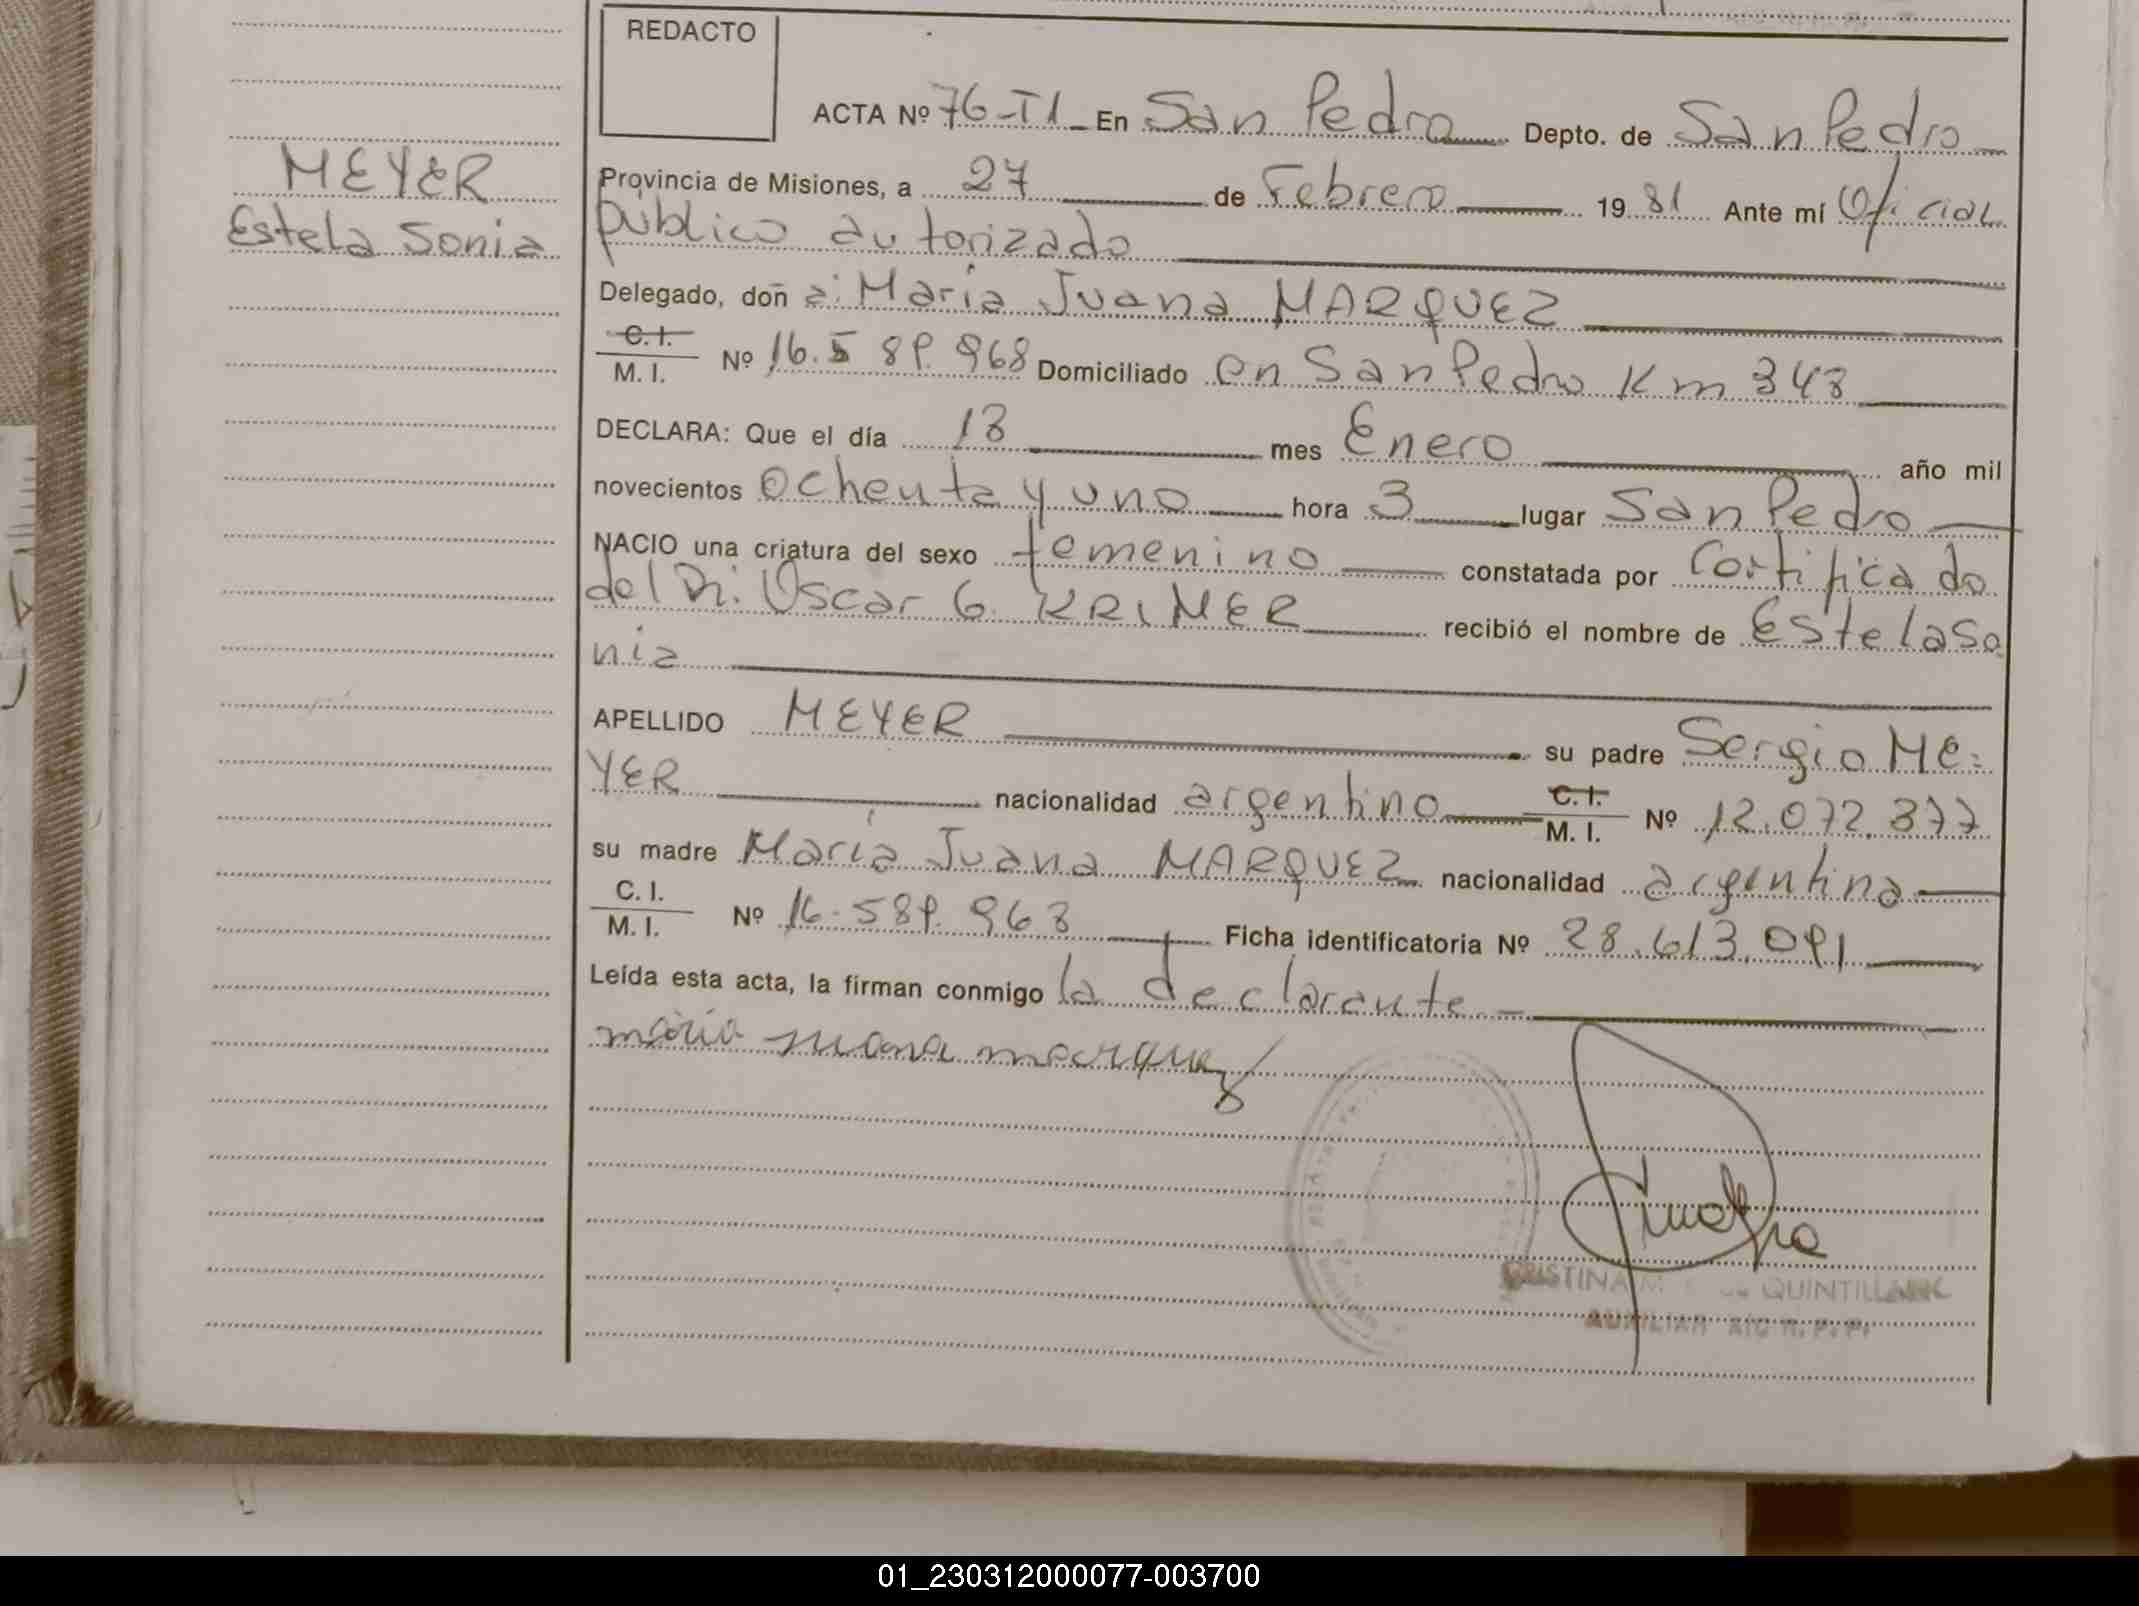 REDACTO
ACTA Nº 76-T1 En San Pedro Depto. de San Pedro
MEYER
Provincia de Misiones, a 27 de Febrero 1981 Ante mí Oficial
Estela Sonia
público autorizado
Delegado, don a: María Juana MARQUEZ
C. I.
M. I. Nº 16.589.968 Domiciliado en San Pedro Km 343
DECLARA: Que el día 13 mes Enero año mil
novecientos ochenta y uno hora 3 lugar San Pedro
NACIO una criatura del sexo femenino constatada por Certificado
del Dr. Oscar G. KRIMER recibió el nombre de Estela So
nia
APELLIDO MEYER su padre Sergio ME=
YER nacionalidad argentino C. I. M. I. Nº 12.072.377
su madre María Juana MARQUEZ nacionalidad argentina
C. I.
M. I. Nº 16.589.968 Ficha identificatoria Nº 28.613.091
Leída esta acta, la firman conmigo la declarante
maria Juana marquez
CRISTINA M QUINTILLAN
AUXILIAR
01_230312000077-003700